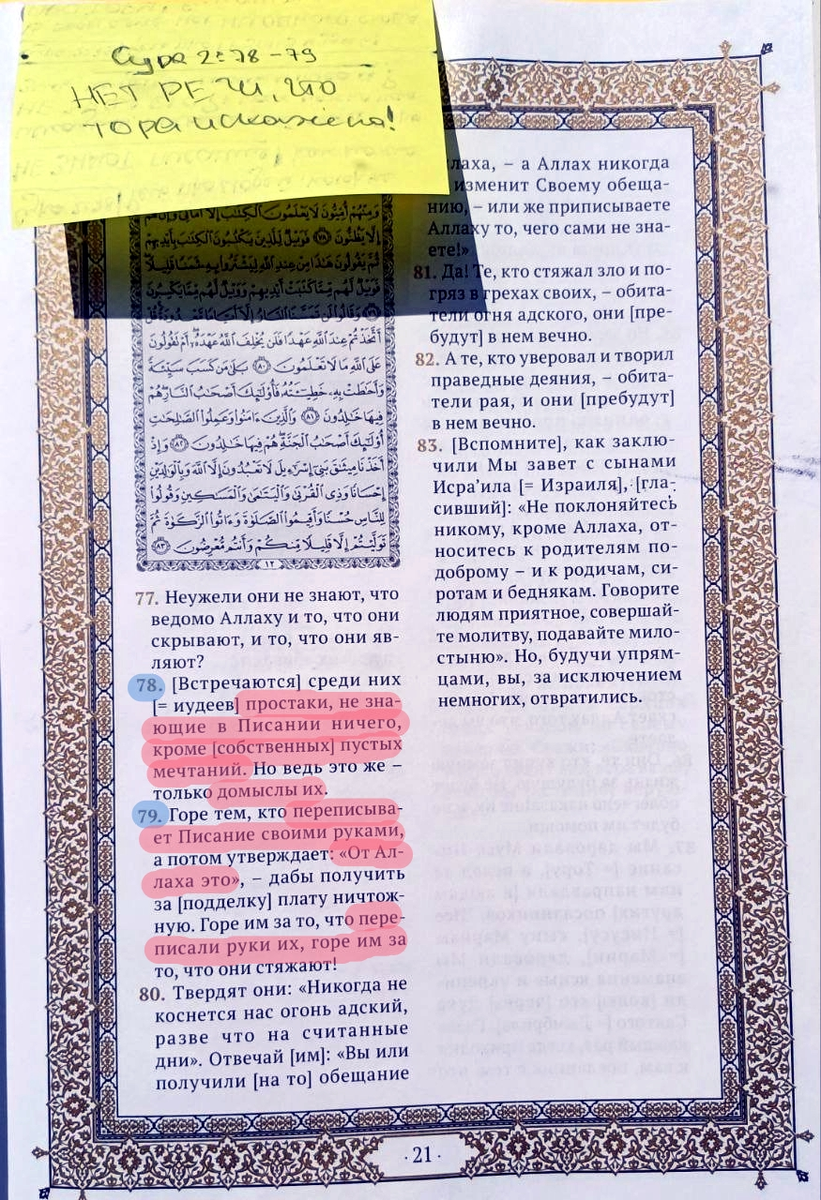 Сура 2:78-79
НЕТ РЕЧИ, что
тора искажена!
وَمِنْهُمْ أُمِّيُّونَ لَا يَعْلَمُونَ الْكِتَابَ إِلَّا أَمَانِيَّ وَإِنْ هُمْ
إِلَّا يَظُنُّونَ ۝٧٨ فَوَيْلٌ لِلَّذِينَ يَكْتُبُونَ الْكِتَابَ بِأَيْدِيهِمْ
ثُمَّ يَقُولُونَ هَٰذَا مِنْ عِنْدِ اللَّهِ لِيَشْتَرُوا بِهِ ثَمَنًا قَلِيلًا
فَوَيْلٌ لَهُمْ مِمَّا كَتَبَتْ أَيْدِيهِمْ وَوَيْلٌ لَهُمْ مِمَّا يَكْسِبُونَ
۝٧٩ وَقَالُوا لَنْ تَمَسَّنَا النَّارُ إِلَّا أَيَّامًا مَعْدُودَةً قُلْ
أَتَّخَذْتُمْ عِنْدَ اللَّهِ عَهْدًا فَلَنْ يُخْلِفَ اللَّهُ عَهْدَهُ أَمْ تَقُولُونَ
عَلَى اللَّهِ مَا لَا تَعْلَمُونَ ۝٨٠ بَلَىٰ مَنْ كَسَبَ سَيِّئَةً
وَأَحَاطَتْ بِهِ خَطِيئَتُهُ فَأُولَٰئِكَ أَصْحَابُ النَّارِ هُمْ
فِيهَا خَالِدُونَ ۝٨١ وَالَّذِينَ آمَنُوا وَعَمِلُوا الصَّالِحَاتِ
أُولَٰئِكَ أَصْحَابُ الْجَنَّةِ هُمْ فِيهَا خَالِدُونَ ۝٨٢ وَإِذْ
أَخَذْنَا مِيثَاقَ بَنِي إِسْرَائِيلَ لَا تَعْبُدُونَ إِلَّا اللَّهَ وَبِالْوَالِدَيْنِ
إِحْسَانًا وَذِي الْقُرْبَىٰ وَالْيَتَامَىٰ وَالْمَسَاكِينِ وَقُولُوا
لِلنَّاسِ حُسْنًا وَأَقِيمُوا الصَّلَاةَ وَآتُوا الزَّكَاةَ ثُمَّ
تَوَلَّيْتُمْ إِلَّا قَلِيلًا مِنْكُمْ وَأَنْتُمْ مُعْرِضُونَ ۝٨٣
١٢
77. Неужели они не знают, что
ведомо Аллаху и то, что они
скрывают, и то, что они яв-
ляют?
78. [Встречаются] среди них
[= иудеев] простаки, не зна-
ющие в Писании ничего,
кроме [собственных] пустых
мечтаний. Но ведь это же –
только домыслы их.
79. Горе тем, кто переписыва-
ет Писание своими руками,
а потом утверждает: «От Ал-
лаха это», – дабы получить
за [подделку] плату ничтож-
ную. Горе им за то, что пере-
писали руки их, горе им за
то, что они стяжают!
80. Твердят они: «Никогда не
коснется нас огонь адский,
разве что на считанные
дни». Отвечай [им]: «Вы или
получили [на то] обещание
лаха, – а Аллах никогда
изменит Своему обеща-
нию, – или же приписываете
Аллаху то, чего сами не зна-
ете!»
81. Да! Те, кто стяжал зло и по-
гряз в грехах своих, – обита-
тели огня адского, они [пре-
будут] в нем вечно.
82. А те, кто уверовал и творил
праведные деяния, – обита-
тели рая, и они [пребудут]
в нем вечно.
83. [Вспомните], как заклю-
чили Мы завет с сынами
Исра'ила [= Израиля], [гла-
сивший]: «Не поклоняйтесь
никому, кроме Аллаха, от-
носитесь к родителям по-
доброму – и к родичам, си-
ротам и беднякам. Говорите
людям приятное, совершай-
те молитву, подавайте мило-
стыню». Но, будучи упрям-
цами, вы, за исключением
немногих, отвратились.
· 21 ·